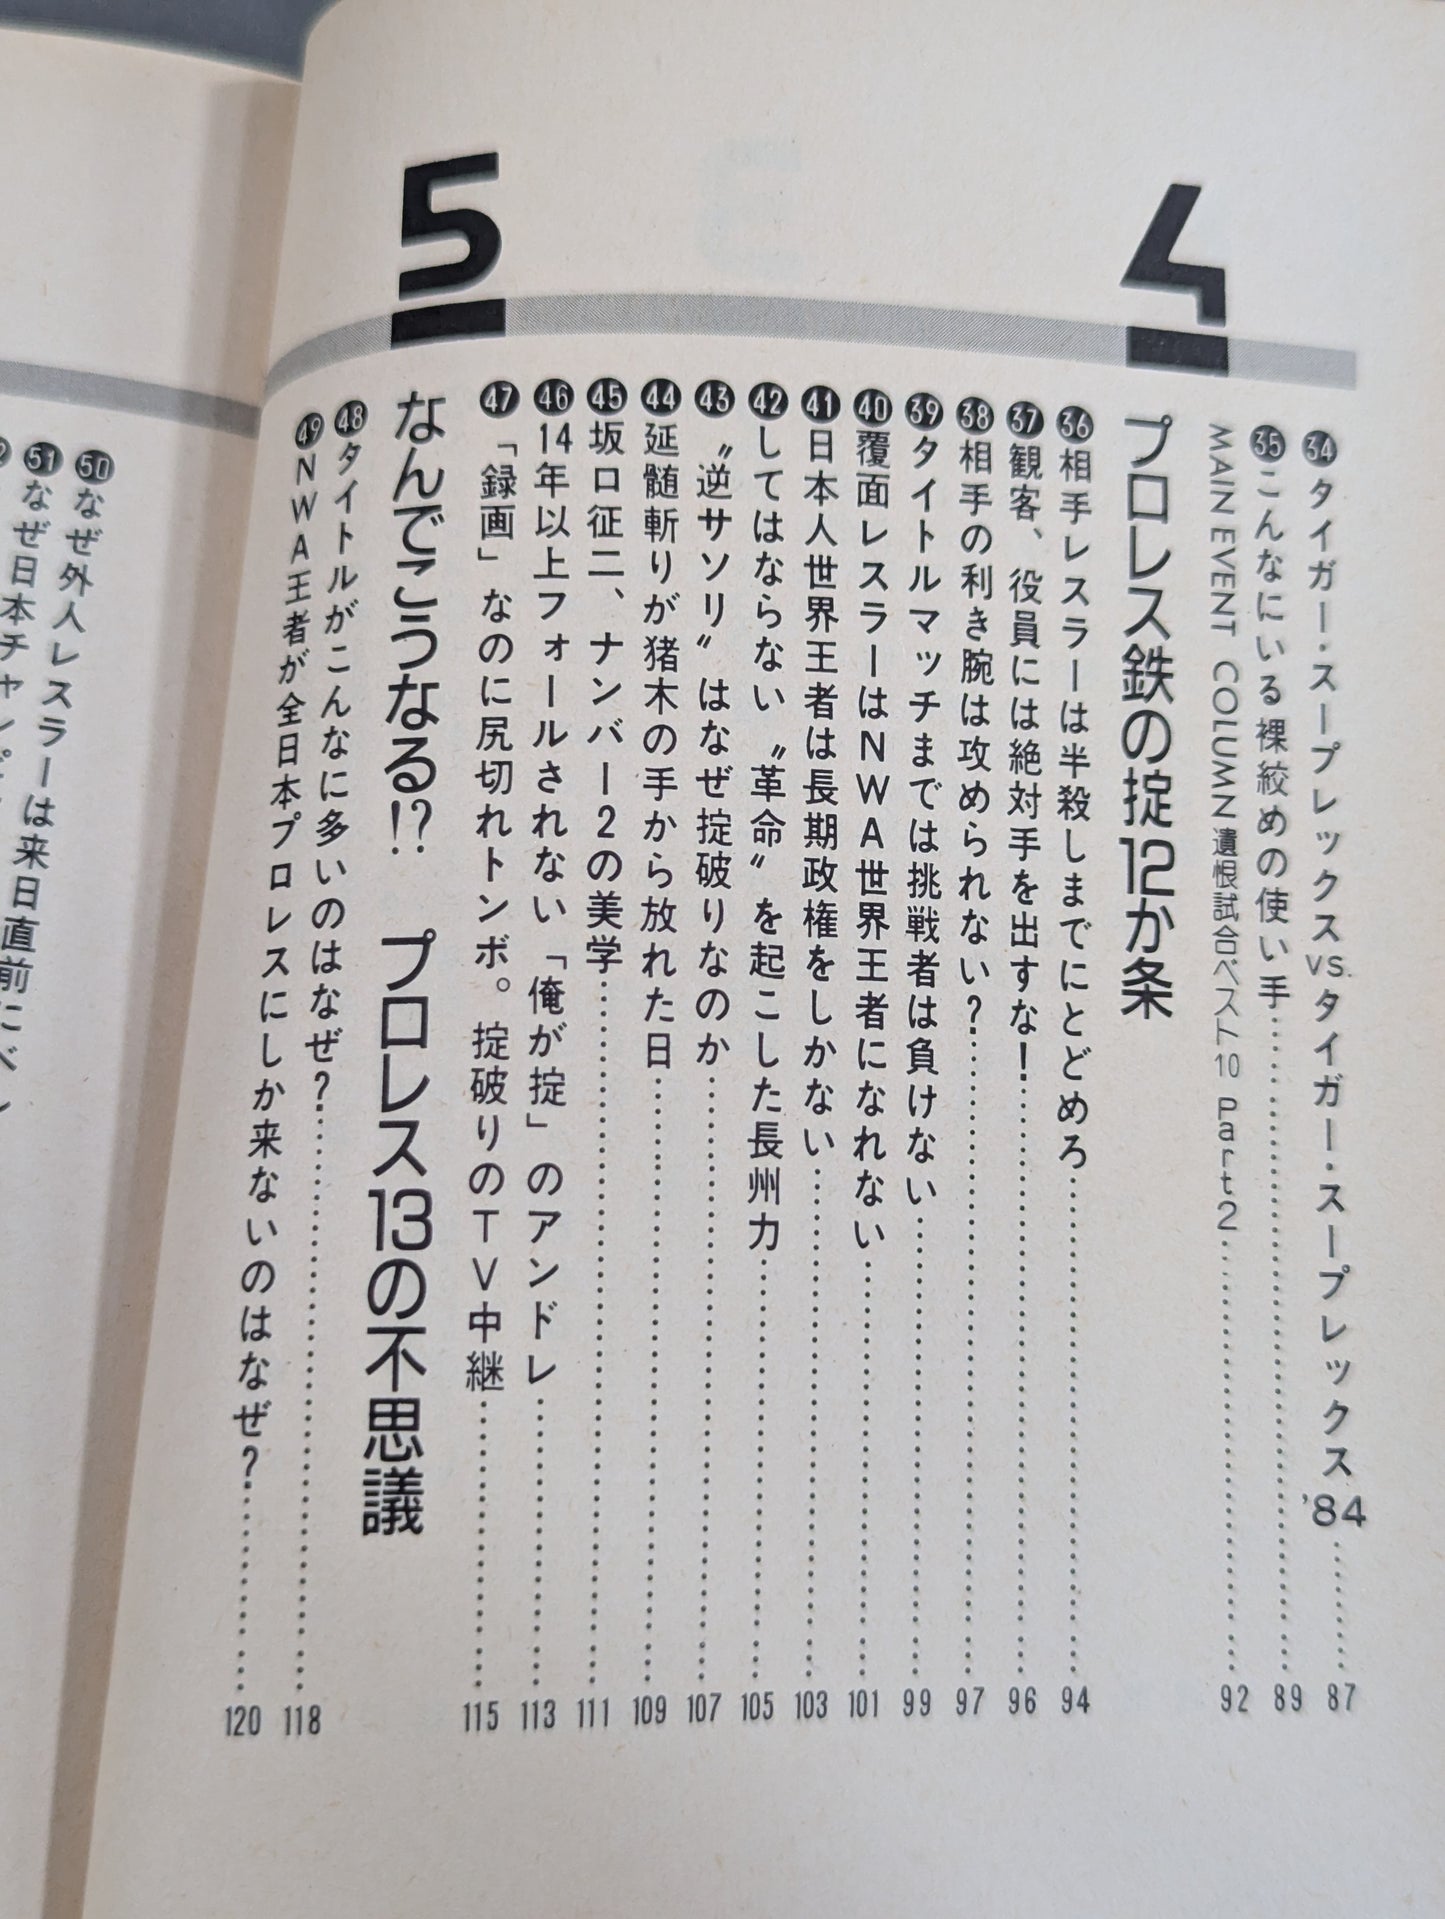 ㉞タイガー・スープレックスvs.タイガー・スープレックス'84……87
㉟こんなにいる裸絞めの使い手……89
MAIN EVENT COLUMN 遺恨試合ベスト10 Part2……92
4
プロレス鉄の掟12か条
㊱相手レスラーは半殺しまでにとどめろ……94
㊲観客、役員には絶対手を出すな!……96
㊳相手の利き腕は攻められない?……97
㊴タイトルマッチまでは挑戦者は負けない……99
㊵覆面レスラーはNWA世界王者になれない……101
㊶日本人世界王者は長期政権をしかない……103
㊷してはならない〝革命〟を起こした長州力……105
㊸〝逆サソリ〟はなぜ掟破りなのか……107
㊹延髄斬りが猪木の手から放れた日……109
㊺坂口征二、ナンバー2の美学……111
㊻14年以上フォールされない「俺が掟」のアンドレ……113
㊼「録画」なのに尻切れトンボ。掟破りのTV中継……115
5
なんでこうなる!? プロレス13の不思議
㊽タイトルがこんなに多いのはなぜ?……118
㊾NWA王者が全日本プロレスにしか来ないのはなぜ?……120
㊿なぜ外人レスラーは来日直前に
51なぜ日本チャンピ